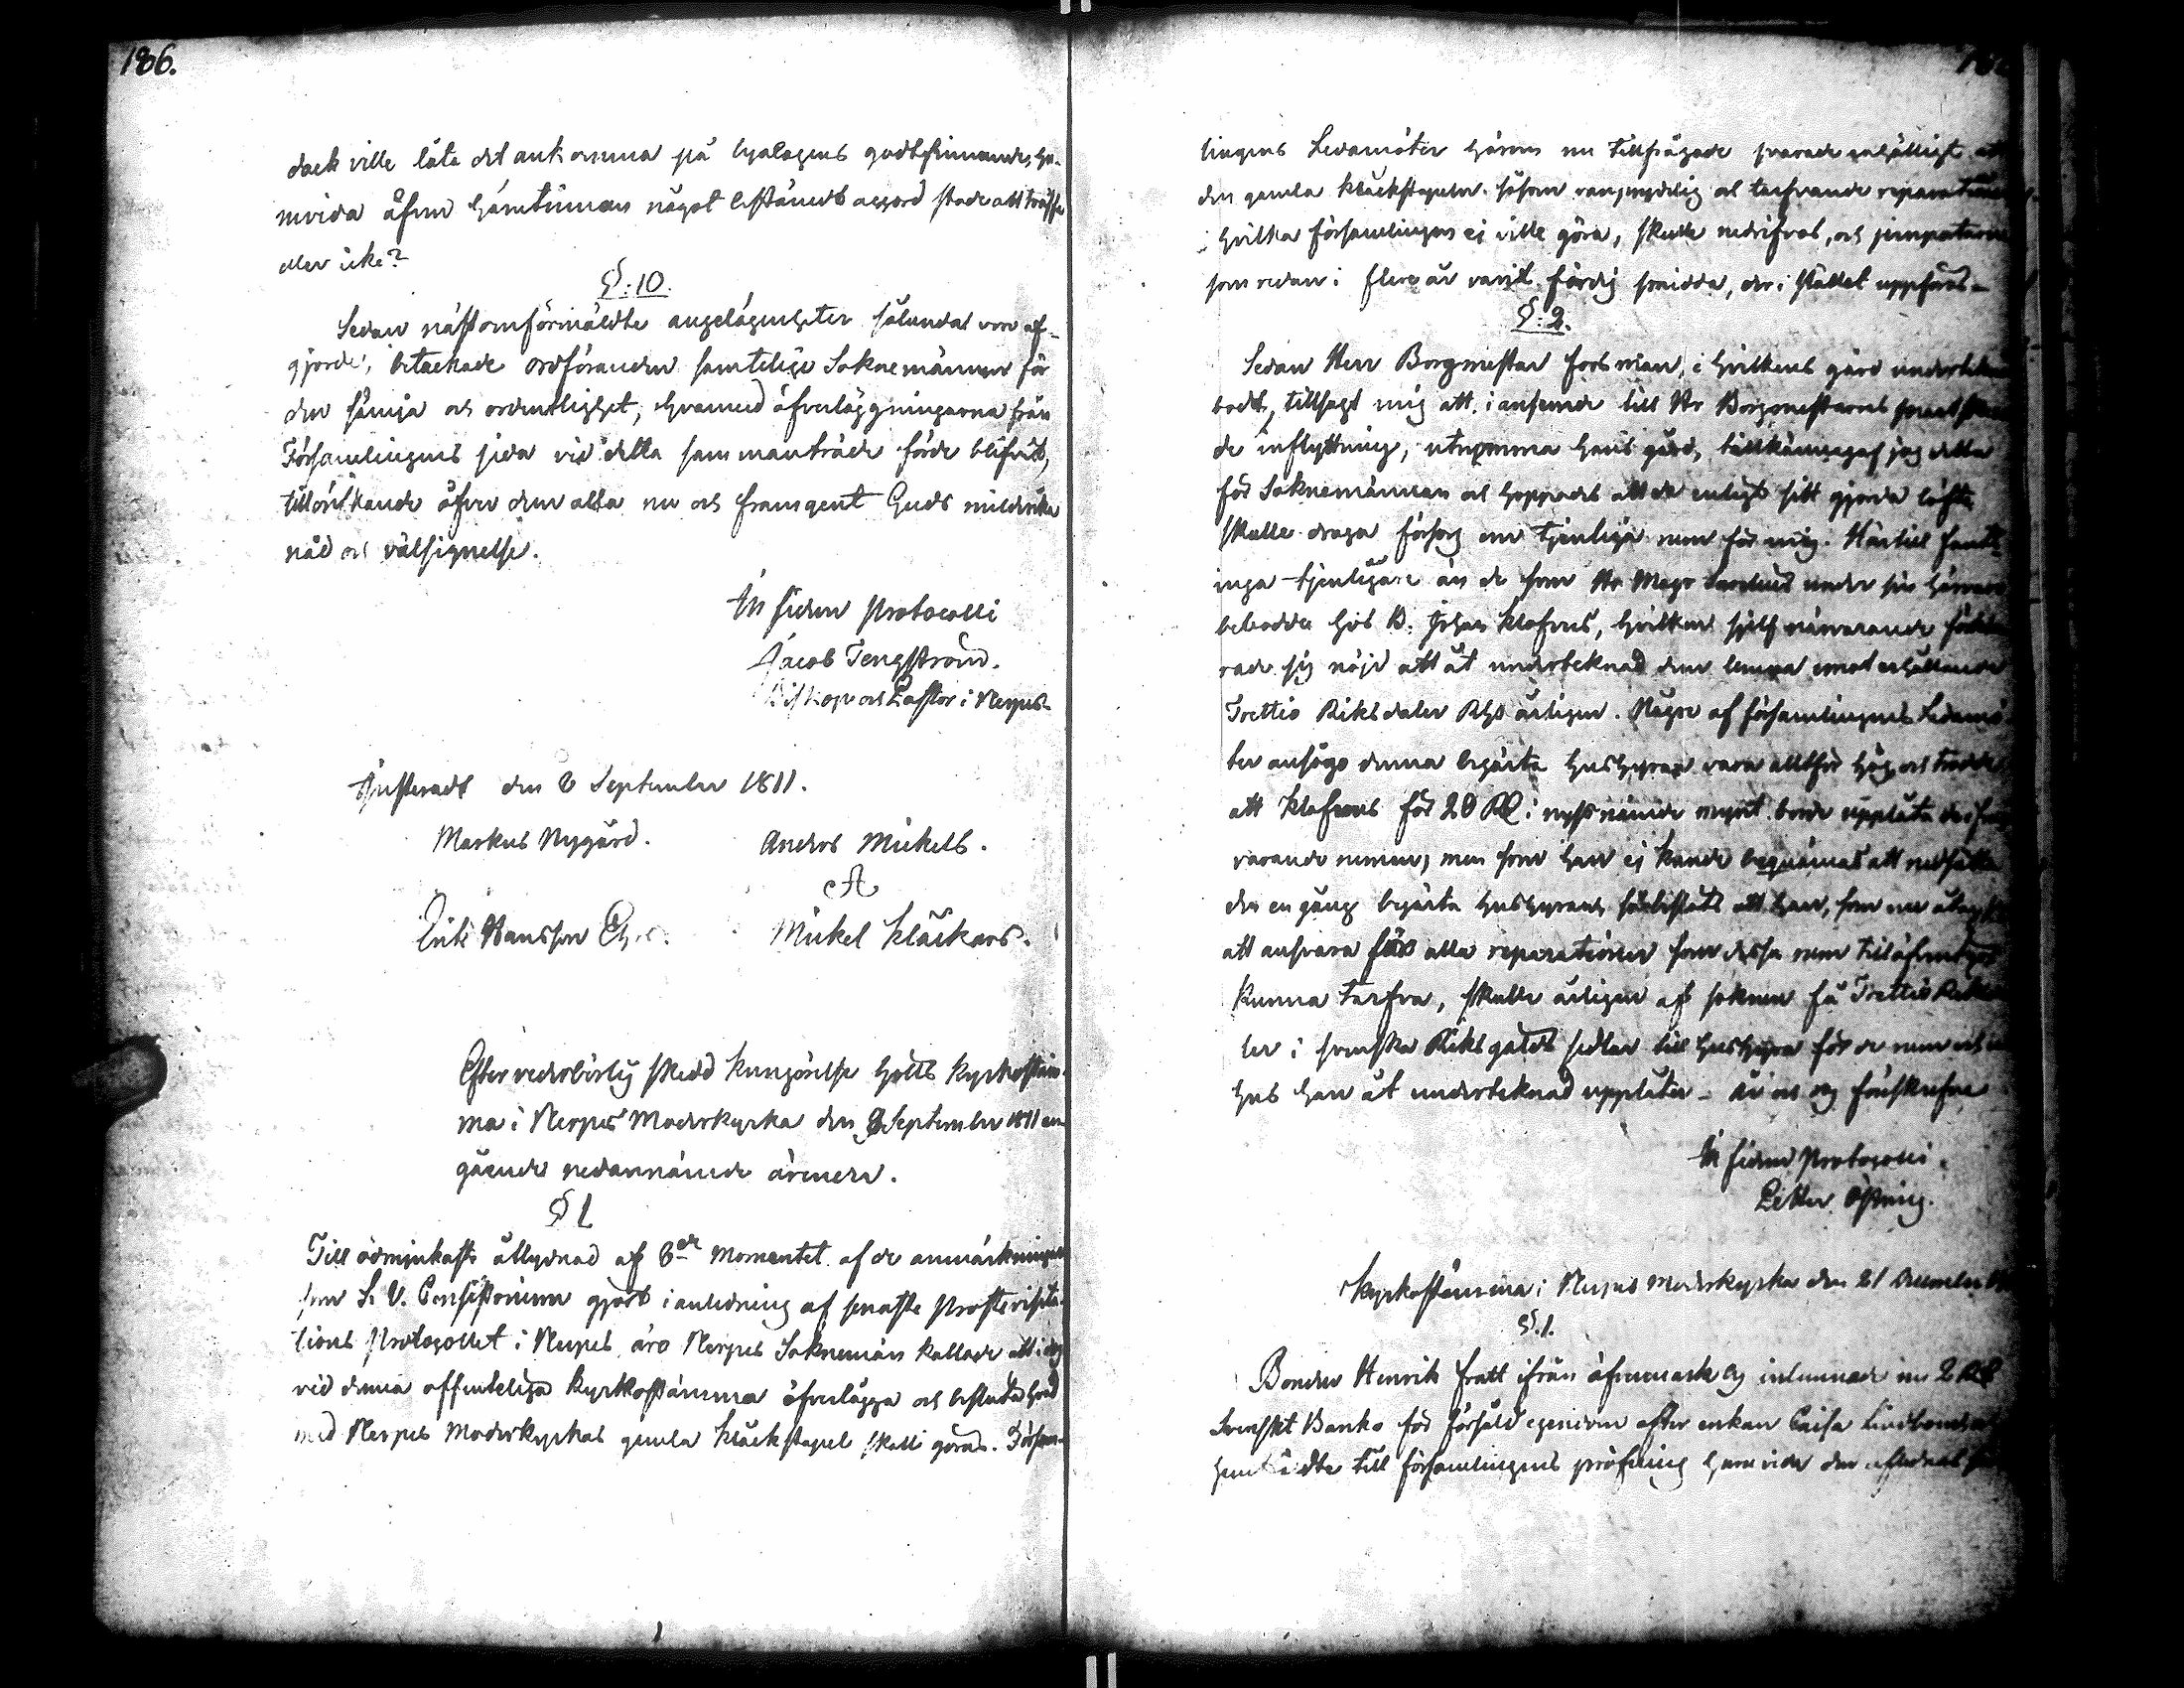 186.
dock ville låta det ankomma på byalagens godtfinnande, hu-
ruvida äfven härutinnan något beständt accord stode att träffa
eller icke?
§: 10.
Sedan nästomförmäldte angelägenheter sålunda voro af-
gjorde, betackade ordföranden samtelige Soknemännen för
den sämja och ordentlighet, hvarmed öfverläggningarna från
Församlingens sida vid detta sammanträde förde blifvit,
tillönskande äfven dem alla nu och framgent Guds milderika
nåd och välsignelse.
In fidem Protocolli
Jacob Tengström.
Biskop och Pastor i Nerpes.
Justeradt den 8 September 1811.
Markus Nygård. Anders Mickels.
Erik Hansson Mickel Kläckars.
Efter vederbörlig skedd kungörelse hölts kyrkostäm-
ma i Nerpes Moderkyrka den 8 September 1811 an-
gående nedannämde ärender.
§ 1
Till ödmjukaste åtlydnad af 6te Momentet af de anmärkningar
som S. V. Consistorium gjort i anledning af senaste Prostevisita-
tions Protocollet i Nerpes äro Nerpes Soknemän kallade att i dag
vid denna offenteliga Kyrkostämma öfverlägga och besluta hvad
med Nerpes Moderkyrkas gamla kläckstapel skall göras. Försam-
lingens Ledamöter härom nu tillfrågade svarade enhälligt att
den gamla kläckstapeln såsom vanprydelig och tarfvande reparationer
hvilka församlingen ej ville göra, skulle nedrifvas, och
som redan i flere år varit färdig smidda, der i stället uppföras.
§: 2.
Sedan Herr Borgmestar Forsman, i hvilkens gård undertecknad
bodt, tillsagt mig att i anseende till Hr Borgmestarens
de inflyttning, utrymma hans gård, tillkännagaf jag detta
för Soknemännen och hoppades att de enligt sitt gjorda löfte
skulle draga försorg om tjenliga rum för mig. Härtill funnos
inga tjenligare än de som Hr Mag: under sin härvaro
bebodde hos B. Johan Klofvus, hvilken sjelf närvarande förkla-
rade sig nöjd att åt undertecknad dem lemna emot erhållande
Trettio Riksdaler Rgs årligen. Någre af församlingens Ledamö-
ter ansågo denna begärta hushyran vara alltför hög och trodde
att Klofvus för 20 RD i nyssnämde mynt borde upplåta de
varande rummen, men som han ej kunde beqvämas att nedsätta
den en gång begärta hushyran, så att han, som nu åtog sig
att ansvara för alla reparationer som dessa rum tilläfventyrs
kunna tarfva, skulle årligen af soknen få Trettio Riksda-
ler i svenska Riksgälds sedlar till hushyra för de rum och
hus han åt undertecknad upplåter. År och dag förutskrefne
In fidem Protocolli.
Petter Östring.
Kyrkostämma i Nerpes Moderkyrka den 21 December
§. 1.
Bonden Henrik Fratt ifrån Öfvermark by inlemnade nu 2 RD
Svenskt Banko för försåld egendom efter enkan Caisa
till församlingens pröfning huruvida den aflednas